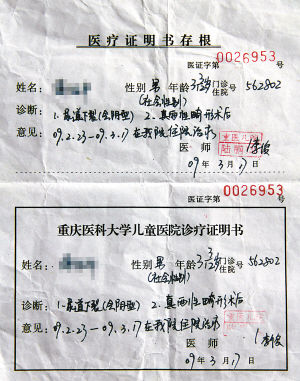 医疗证明书存根
医证字第 0026953 号
姓名： 性别 男 年龄 门诊 住院 号 562802
(社会性别)
诊断： 1.尿道下裂(会阴型) 2.真两性畸形术后
意见： 09.2.23—09.3.17在我院住院治疗
医师
09年3月17日
医证字第 0026953 号
重庆医科大学儿童医院诊疗证明书
姓名： 性别 男 年龄 门诊 住院 号 562802
(社会性别)
诊断： 1.尿道下裂(会阴型) 2.真两性畸形术后
意见： 09.2.23—09.3.17在我院住院治疗
医师
09年3月17日